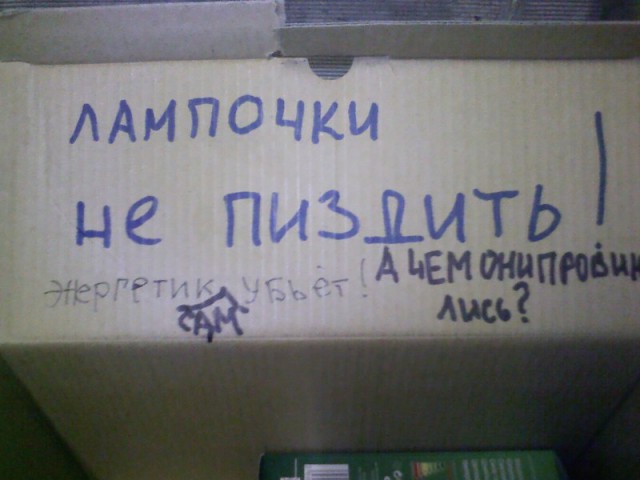 лампочки
не пиздить!
энергетик убьёт!
сам
А ЧЕМ ОНИ ПРОВИНИ
лись?